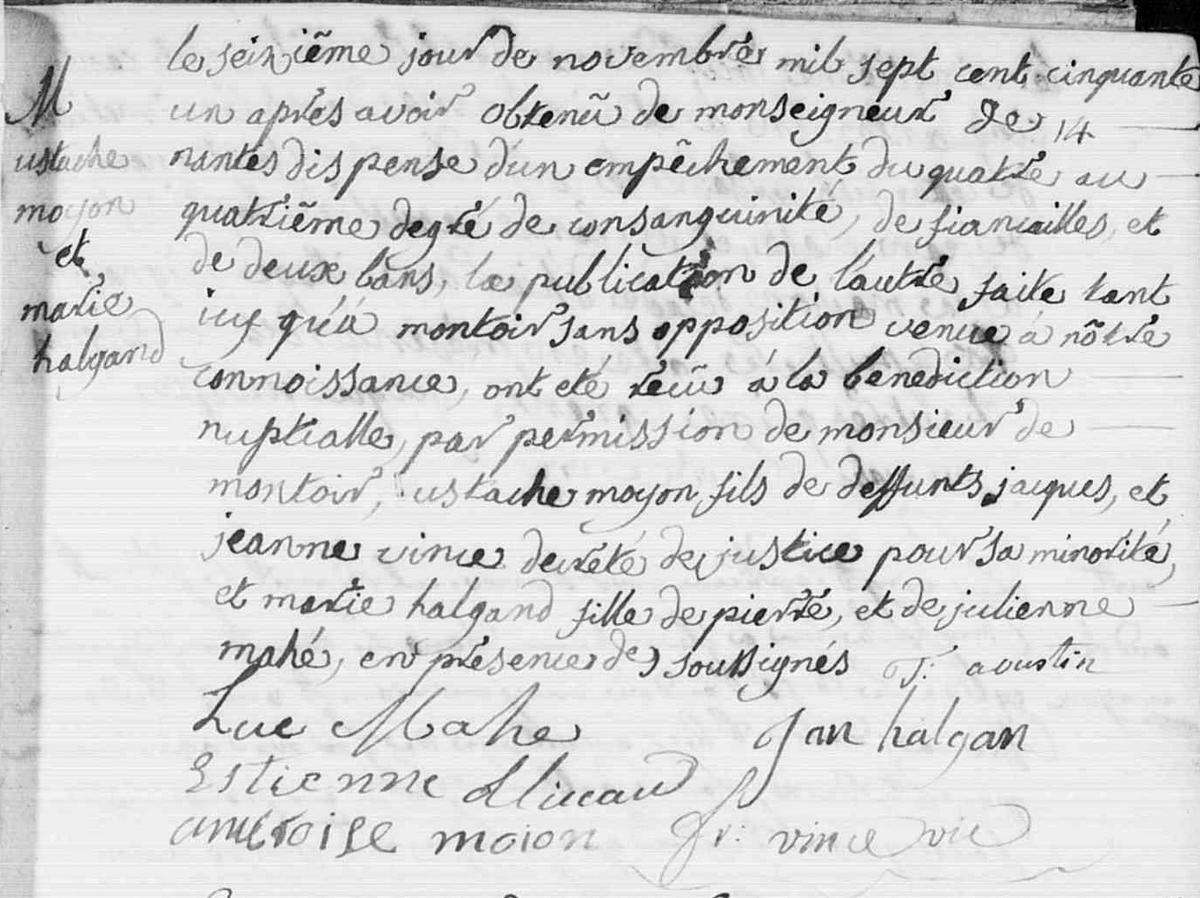 M
ustache
moyon
et
marie
halgand
le seizième jour de novembre mil sept cent cinquante
un après avoir obtenu de monseigneur de 14
nantes dispense d'un empêchement du quatre au
quatrième degré de consanguinité, de fiancailles, et
de deux bans, la publication de l'autre faite tant
icy qu'à montoir sans opposition venue à nôtre
connoissance, ont été réçu à la benediction
nuptialle, par permission de monsieur de
montoir, ustache moyon fils de deffunts jacques, et
jeanne vince decrété de justice pour sa minorité,
et marie halgand fille de pierre, et de julienne
mahé, en présence des soussignés J. aoustin
Luc Mahe Jan halgan
Estienne
ambroise moion Fr: vince vic